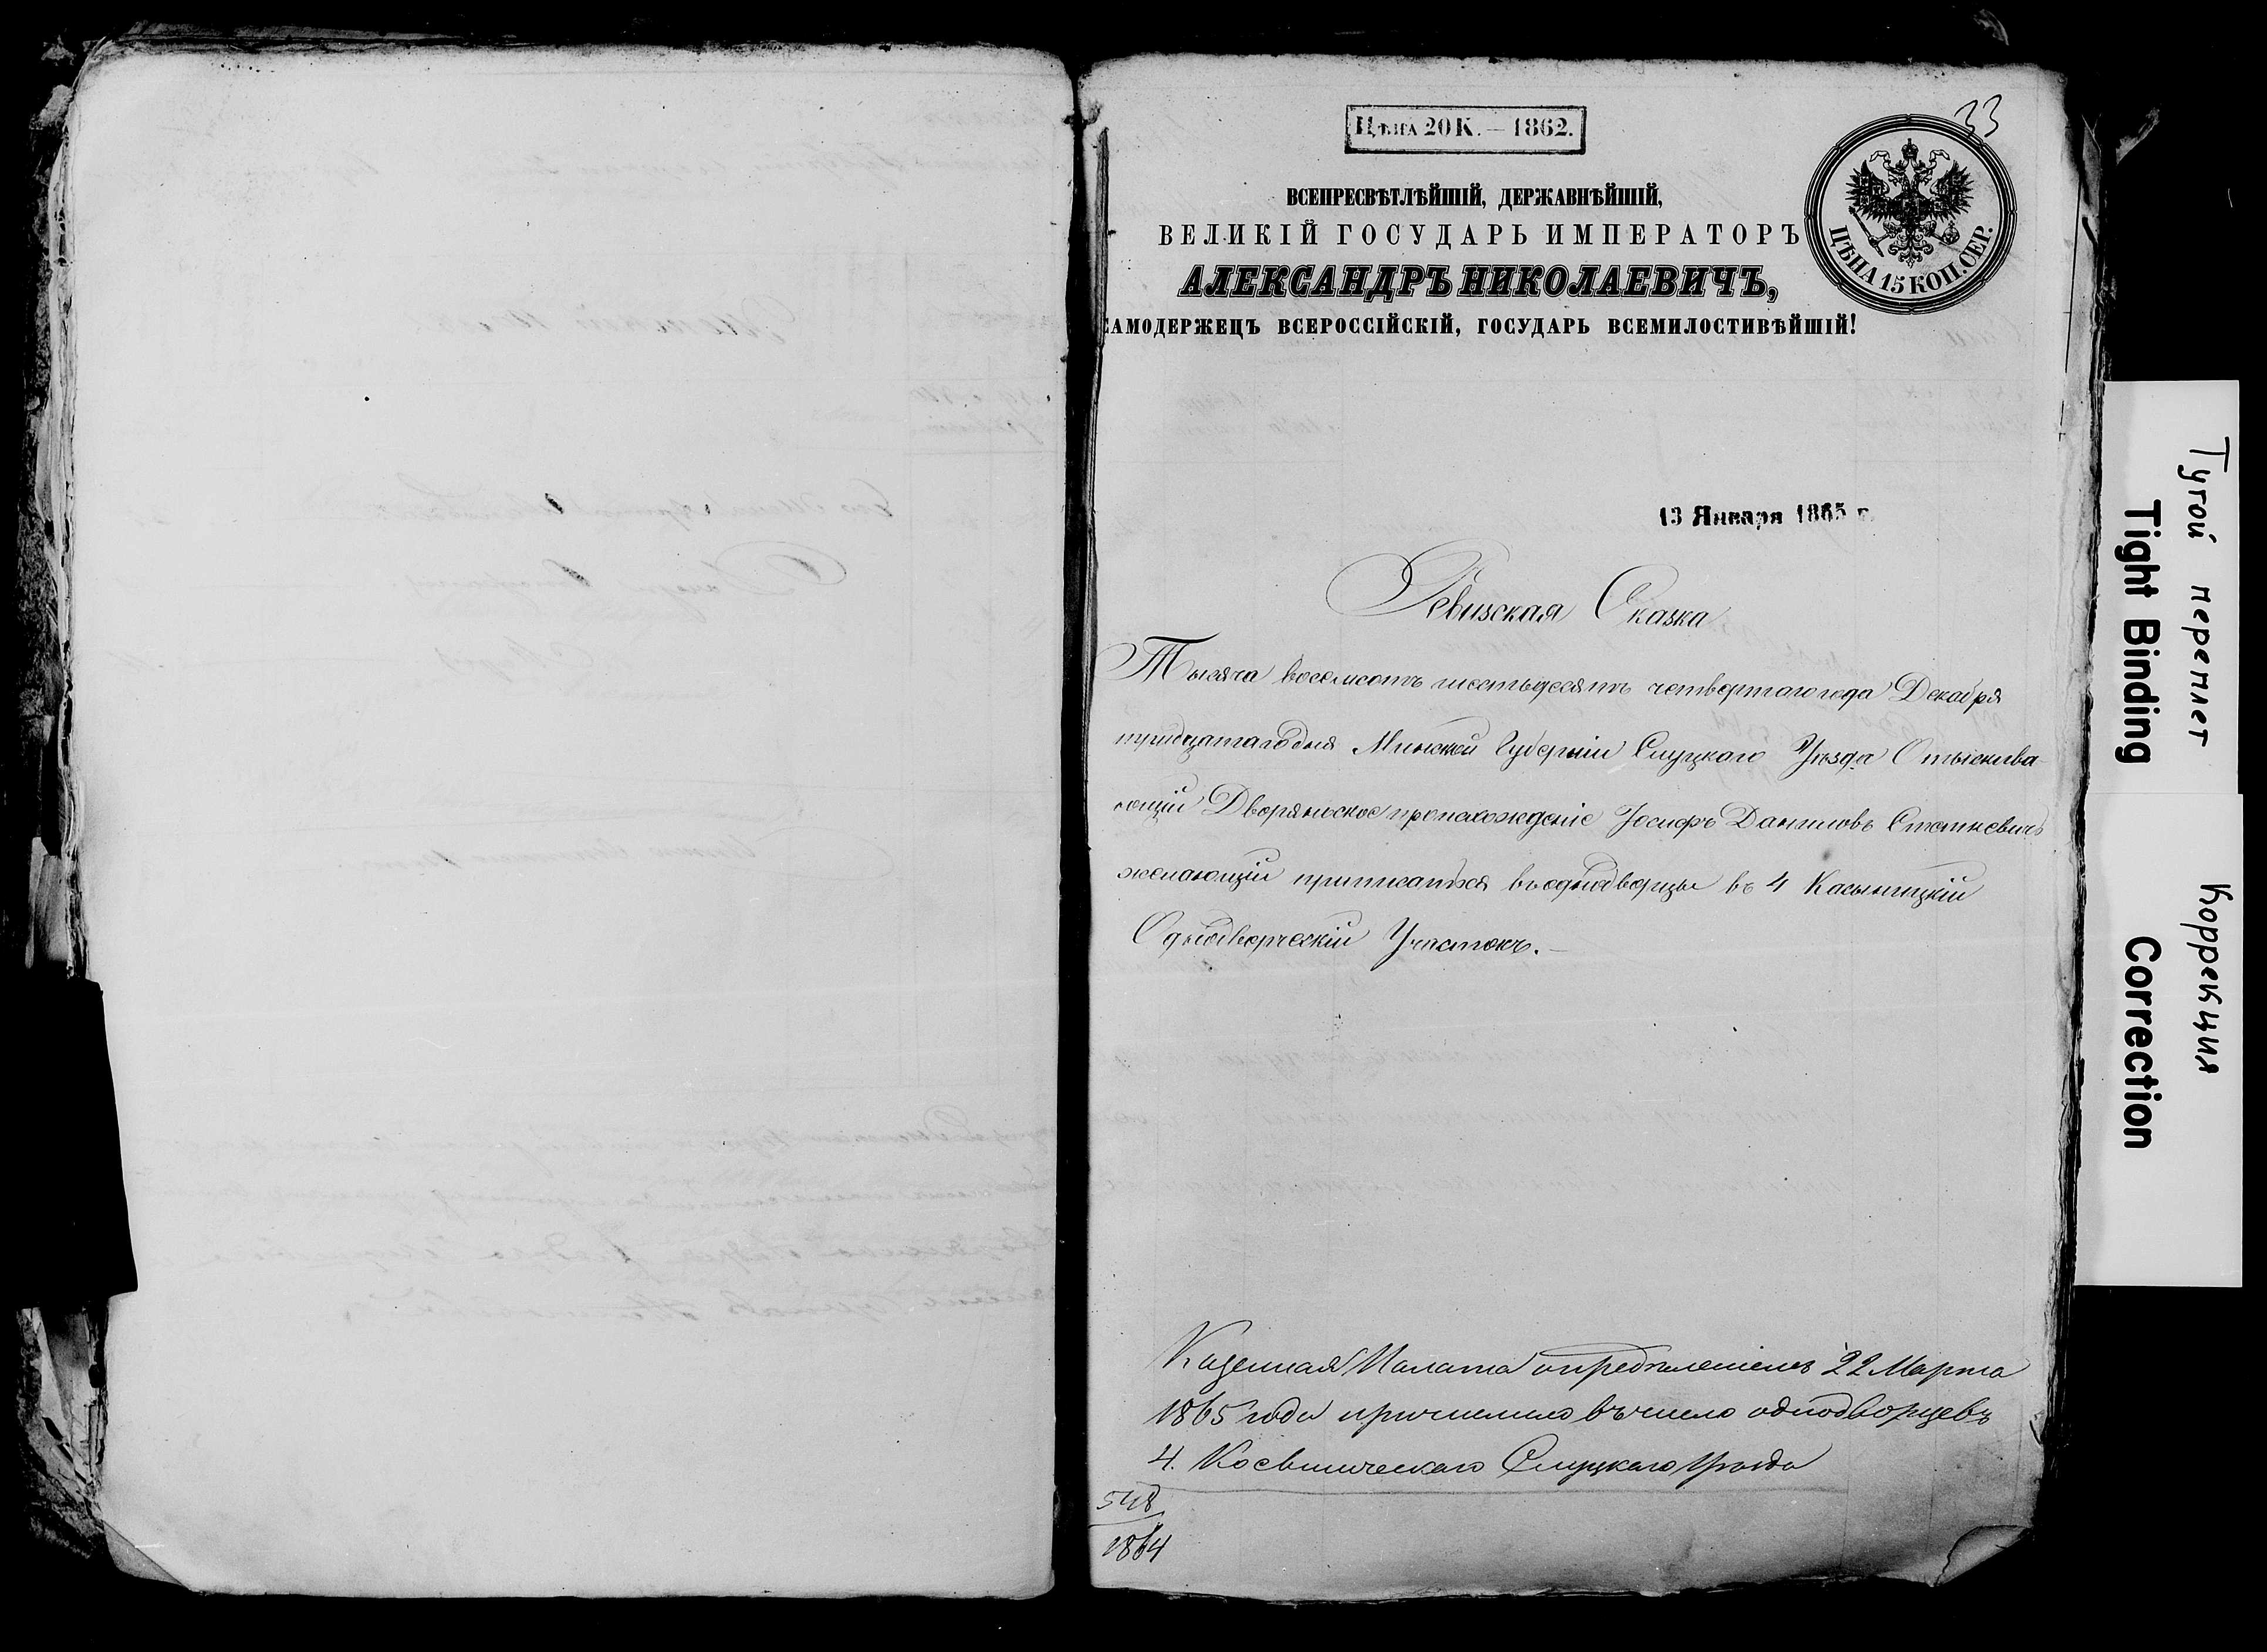 33
ЦѢНА 20 К. — 1862.
ВСЕПРЕСВѢТЛѢЙШІЙ, ДЕРЖАВНѢЙШІЙ,
ВЕЛИКІЙ ГОСУДАРЬ ИМПЕРАТОРЪ
АЛЕКСАНДРЪ НИКОЛАЕВИЧЪ,
САМОДЕРЖЕЦЪ ВСЕРОССІЙСКІЙ, ГОСУДАРЬ ВСЕМИЛОСТИВѢЙШІЙ!
ЦѢНА 15 КОП. СЕР.
13 Января 1865 г.
Ревизская Сказка
Тысяча восемсотъ шестьдесятъ четвертаго года Декабря
тридцатаго дня Минской Губерніи Слуцкаго Уѣзда Отыскива-
ющій Дворянское происхожденіе Іосифъ Даниловъ Статкевичъ
желающій приписатся въ однодворцы въ 4 Касыницкій
Однодворческій Участокъ.—
Казенная Палата опредѣленіемъ 22 Марта
1865 года причислила въ число однодворцевъ
4. Слуцкаго уѣзда
548
1864
Тугой переплет
Tight Binding
Коррекция
Correction